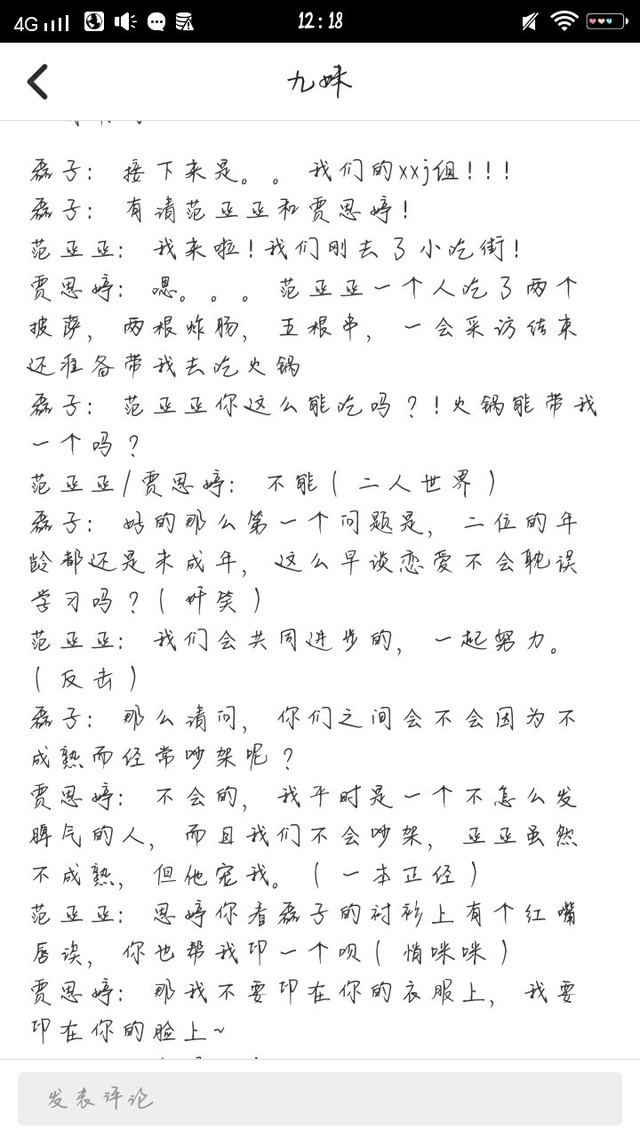 4G 12:18
九妹
磊子：接下来是。。我们的xxj组！！！
磊子：有请范亚亚和贾思婷！
范亚亚：我来啦！我们刚去了小吃街！
贾思婷：嗯。。。范亚亚一个人吃了两个
披萨，两根炸肠，五根串，一会采访结束
还准备带我去吃火锅
磊子：范亚亚你这么能吃吗？！火锅能带我
一个吗？
范亚亚/贾思婷：不能（二人世界）
磊子：好的那么第一个问题是，二位的年
龄都还是未成年，这么早谈恋爱不会耽误
学习吗？（奸笑）
范亚亚：我们会共同进步的，一起努力。
（反击）
磊子：那么请问，你们之间会不会因为不
成熟而经常吵架呢？
贾思婷：不会的，我平时是一个不怎么发
脾气的人，而且我们不会吵架，亚亚虽然
不成熟，但他宠我。（一本正经）
范亚亚：思婷你看磊子的衬衫上有个红嘴
唇诶，你也帮我印一个呗（悄咪咪）
贾思婷：那我不要印在你的衣服上，我要
印在你的脸上~
发表评论